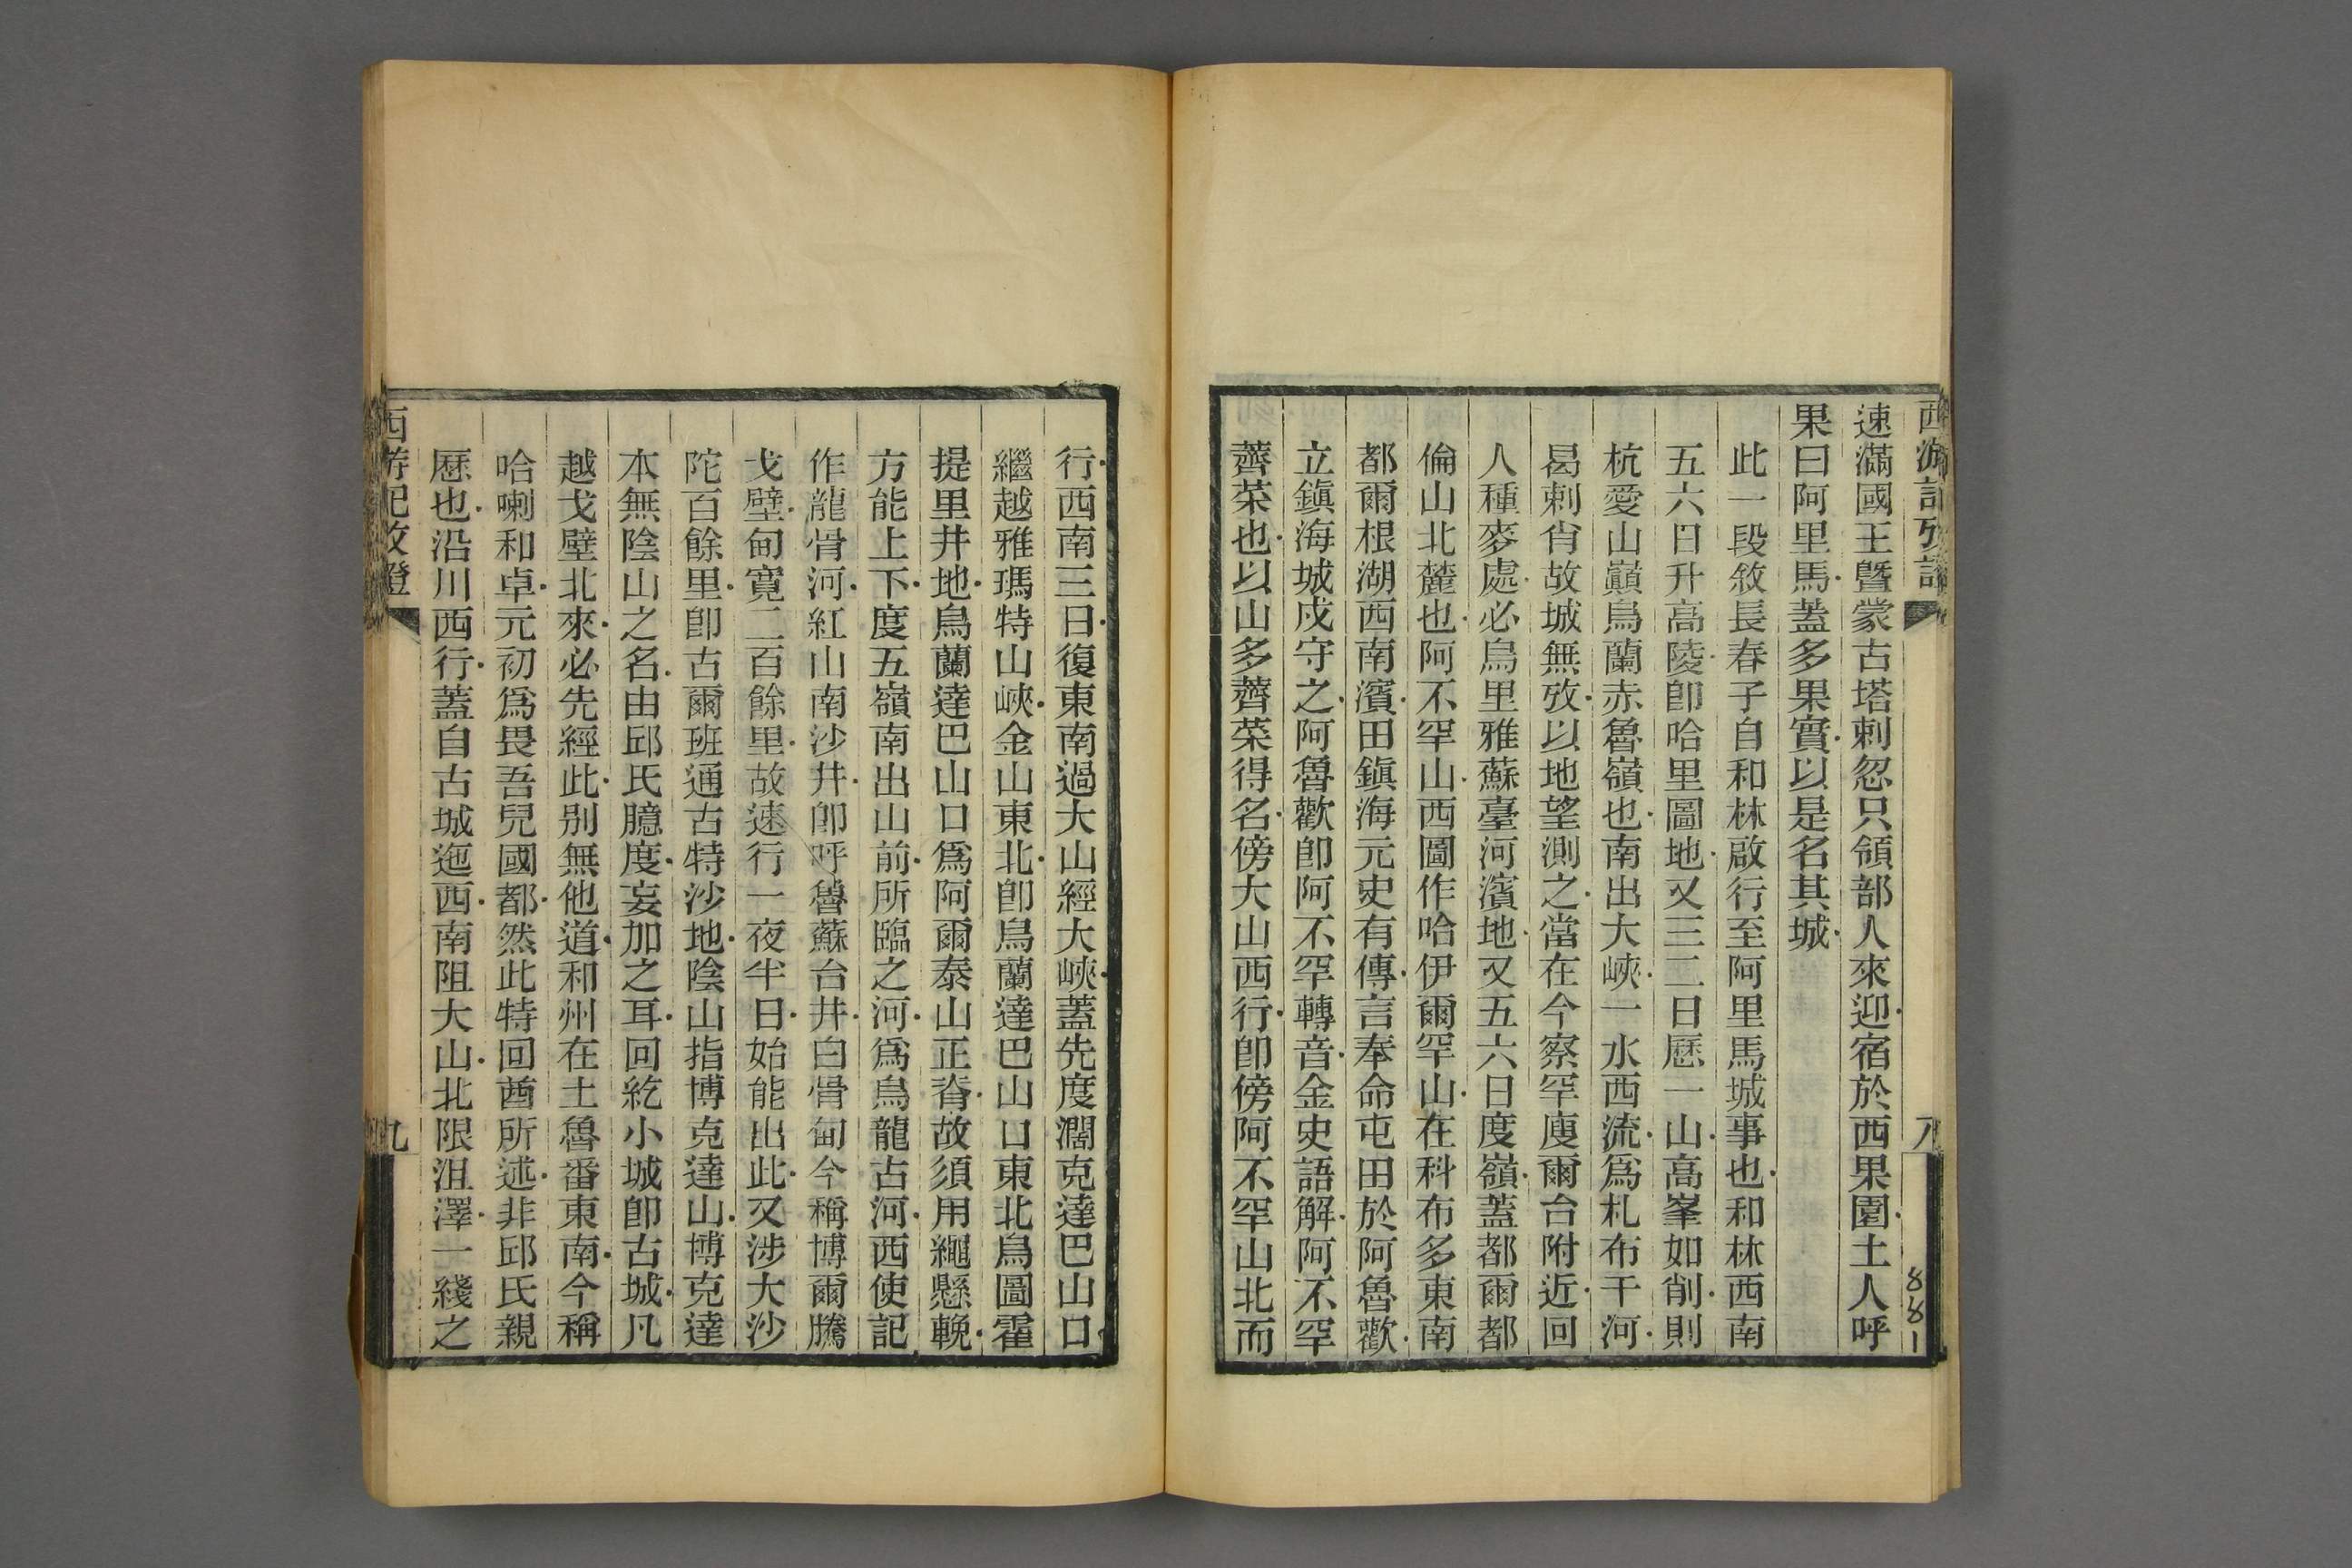 西游記攷證
八
8881
速滿國王暨蒙古塔剌忽只領部人來迎宿於西果園土人呼
果曰阿里馬蓋多果實以是名其城
此一段敘長春子自和林啟行至阿里馬城事也和林西南
五六日升高陵卽哈里圖地又三二日歷一山高峯如削則
杭愛山巔烏蘭赤魯嶺也南出大峽一水西流爲札布干河
曷剌肖故城無攷以地望測之當在今察罕廋爾台附近回
人種麥處必烏里雅蘇臺河濱地又五六日度嶺蓋都爾都
倫山北麓也阿不罕山西圖作哈伊爾罕山在科布多東南
都爾根湖西南濱田鎭海元史有傳言奉命屯田於阿魯歡
立鎭海城戍守之阿魯歡卽阿不罕轉音金史語解阿不罕
薺菜也以山多薺菜得名傍大山西行卽傍阿不罕山北而
行西南三日復東南過大山經大峽蓋先度濶克達巴山口
繼越雅瑪特山峽金山東北卽烏蘭達巴山口東北烏圖霍
提里井地烏蘭達巴山口爲阿爾泰山正脊故須用繩懸輓
方能上下度五嶺南出山前所臨之河爲烏龍古河西使記
作龍骨河紅山南沙井卽呼魯蘇台井白骨甸今稱博爾騰
戈壁甸寬二百餘里故速行一夜半日始能出此又涉大沙
陀百餘里卽古爾班通古特沙地陰山指博克達山博克達
本無陰山之名由邱氏臆度妄加之耳回紇小城卽古城凡
越戈壁北來必先經此別無他道和州在土魯番東南今稱
哈喇和卓元初爲畏吾兒國都然此特回酋所述非邱氏親
歷也沿川西行蓋自古城迤西南阻大山北限沮澤一綫之
西游記攷證
九